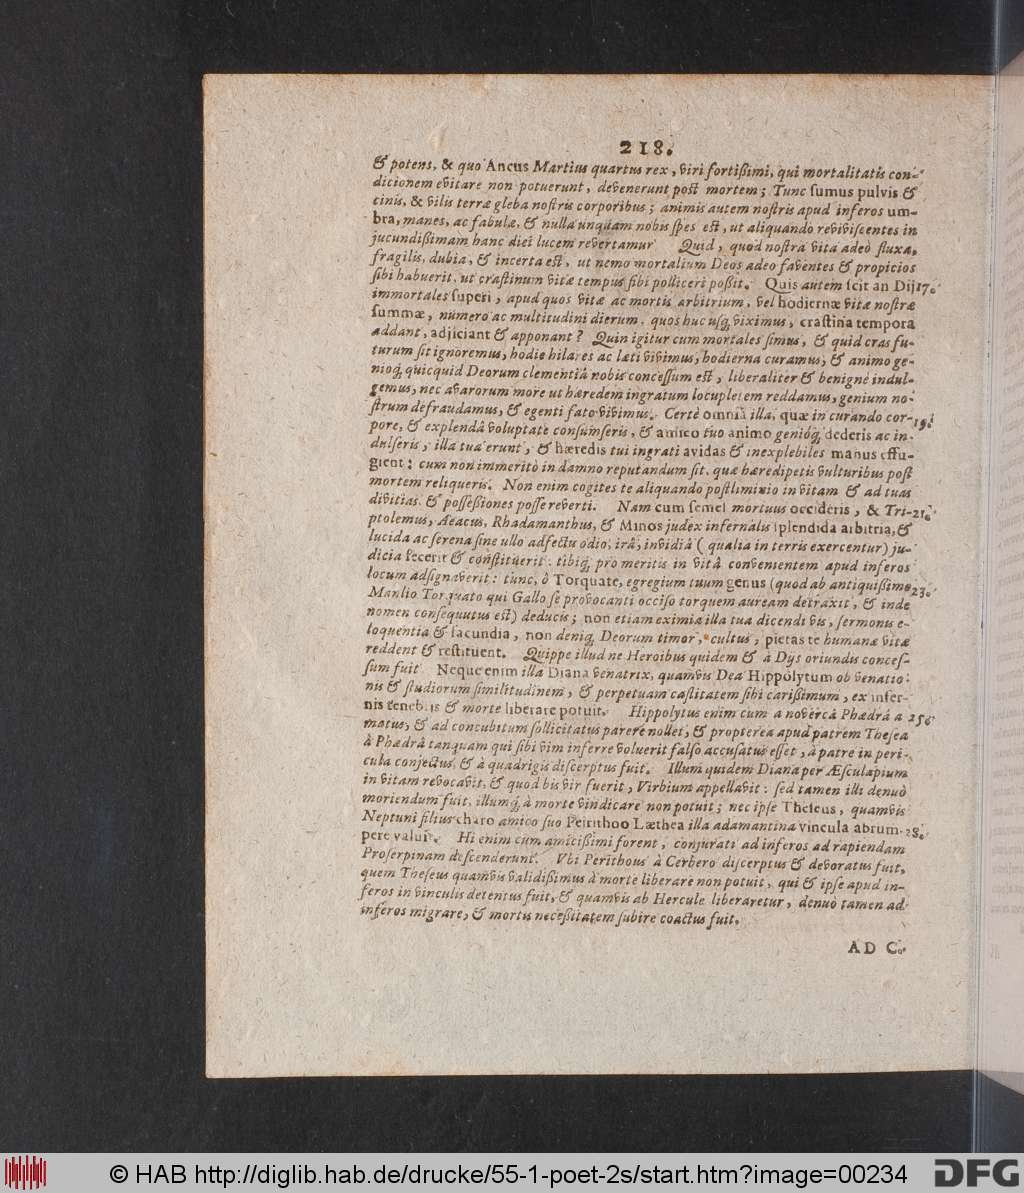 218.
& potens, & quo Ancus Martius quartus rex, viri fortißimi, qui mortalitatis con-
dicionem evitare non potuerunt, devenerunt post mortem; Tunc sumus pulvis &
cinis, & vilis terræ gleba nostris corporibus; animis autem nostris apud inferos um-
bra, manes, ac fabulæ, & nulla unquam nobis spes est, ut aliquando reviviscentes in
jucundißimam hanc diei lucem revertamur Quid, quod nostra vita adeò fluxa,
fragilis, dubia, & incerta est, ut nemo mortalium Deos adeo faventes & propicios
sibi habuerit, ut crastinum vitæ tempus sibi polliceri poßit. Quis autem scit an Dij 17.
immortales superi, apud quos vitæ ac mortis arbitrium, vel hodiernæ vitæ nostræ
summæ, numero ac multitudini dierum, quos huc usq; viximus, crastina tempora
addant, adjiciant & apponant? Quin igitur cum mortales simus, & quid cras fu-
turum sit ignoremus, hodie hilares ac læti vivimus, hodierna curamus, & animo ge-
nioq; quicquid Deorum clementiâ nobis concessum est, liberaliter & benignè indul-
gemus, nec avarorum more ut hæredem ingratum locupletem reddamus, genium no-
strum defraudamus, & egenti fato vivimus. Certè omnia illa, quæ in curando cor- 19.
pore, & explendâ voluptate consumseris, & amico tuo animo genióq; dederis ac in-
dulseris, illa tua erunt, & hæredis tui ingrati avidas & inexplebiles manus effu-
gient: cum non immeritò in damno reputandum sit, quæ hæredipetis vulturibus post
mortem reliqueris. Non enim cogites te aliquando postliminio in vitam & ad tuas
divitias, & possessiones posse reverti. Nam cum semel mortuus occideris, & Tri- 21.
ptolemus, Aeacus, Rhadamanthus, & Minos judex infernalis splendida arbitria, &
lucida ac serena sine ullo adfectu odio, irâ, invidiâ ( qualia in terris exercentur) ju-
dicia fecerit & constituerit: tibiq; pro meritis in vitâ convenientem apud inferos
locum adsignaverit: tunc, ô Torquate, egregium tuum genus (quod ab antiquißimo 23.
Manlio Torquato qui Gallo se provocanti occiso torquem auream detraxit, & inde
nomen consequutus est) deducis; non etiam eximia illa tua dicendi vis, sermonis e-
loquentia & facundia, non deniq; Deorum timor, cultus, pietas te humanæ vitæ
reddent & restituent. Quippe illud ne Heroibus quidem & à Dijs oriundis conces-
sum fuit Neque enim illa Diana venatrix, quamvis Dea Hippolytum ob venatio-
nis & studiorum similitudinem, & perpetuam castitatem sibi carißimum, ex infer-
nis tenebris & morte liberare potuit. Hippolytus enim cum a novercâ Phædrâ a- 25.
matus, & ad concubitum sollicitatus parere nollet, & propterea apud patrem Thesea
à Phædrâ tanquam qui sibi vim inferre voluerit falso accusatus esset, à patre in peri-
cula conjectus, & à quadrigis discerptus fuit. Illum quidem Diana per Æsculapium
in vitam revocavit, & quod bis vir fuerit, Virbium appellavit: sed tamen illi denuò
moriendum fuit, illumq; à morte vindicare non potuit; nec ipse Theseus, quamvis
Neptuni filius charo amico suo Peirithoo Læthea illa adamantina vincula abrum- 28.
pere valuit. Hi enim cum amicißimi forent, conjurati ad inferos ad rapiendam
Proserpinam descenderunt. Vbi Perithous à Cerbero discerptus & devoratus fuit,
quem Theseus quamvis validißimus à morte liberare non potuit, qui & ipse apud in-
feros in vinculis detentus fuit, & quamvis ab Hercule liberaretur, denuò tamen ad
inferos migrare, & mortis neceßitatem subire coactus fuit.
AD C.
© HAB http://diglib.hab.de/drucke/55-1-poet-2s/start.htm?image=00234
DFG